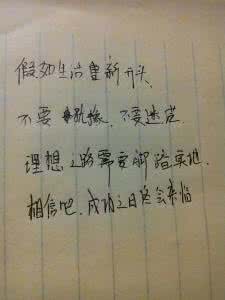 假如生活重新开头,
不要犹豫,不要迷茫.
理想之路需要脚踏实地.
相信吧,成功之日终会来临